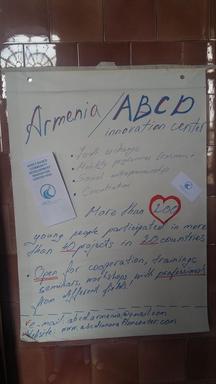 Armenia / ABCD
innovation center
• Youth exchanges
• Mobility programms
• Social entrepreneurship
• Consultation
More than 200
young people participated in more
than 40 projects in 20 countries
• Open for cooperation, trainings
seminars, workshops with professionals
from different fields!
e-mail: abcd.armenia@gmail.com
Website: www.